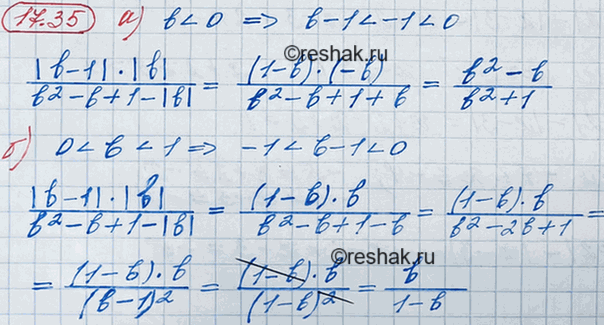 17.35 а) b<0 => b-1<-1<0
©reshak.ru
|b-1|·|b| / b²-b+1-|b| = (1-b)·(-b) / b²-b+1+b = b²-b / b²+1
б) 0<b<1 => -1<b-1<0
|b-1|·|b| / b²-b+1-|b| = (1-b)·b / b²-b+1-b = (1-b)·b / b²-2b+1 =
©reshak.ru
= (1-b)·b / (b-1)² = (1-b)·b / (1-b)² = b / 1-b